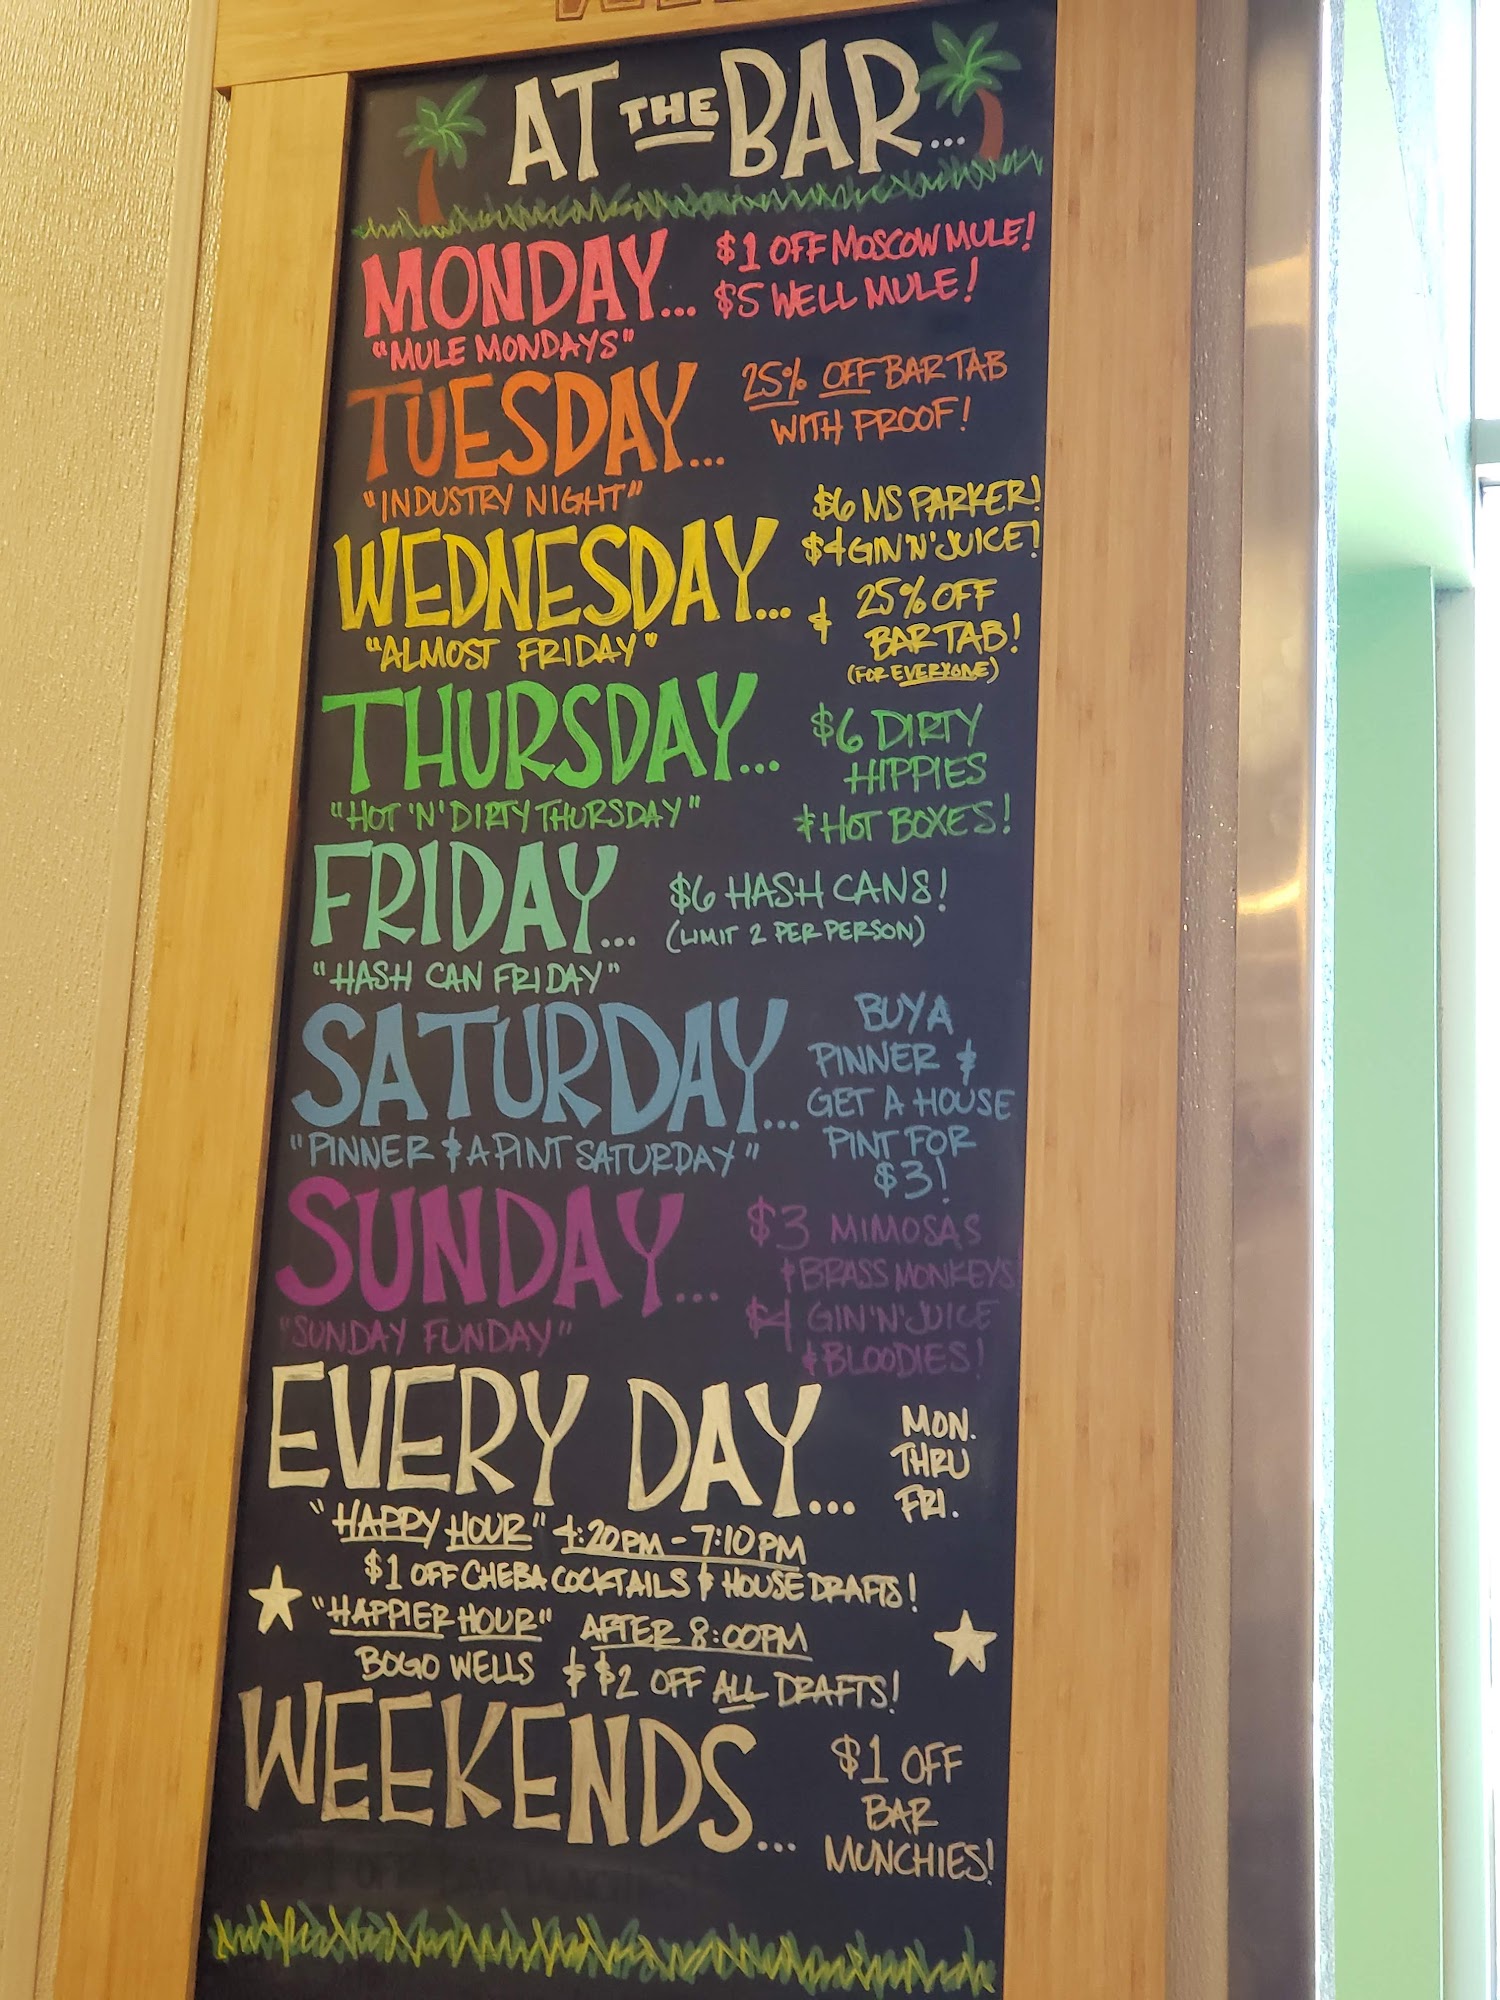 AT THE BAR...
MONDAY... $1 OFF MOSCOW MULE!
$5 WELL MULE!
"MULE MONDAYS"
TUESDAY... 25% OFF BAR TAB
WITH PROOF!
"INDUSTRY NIGHT"
WEDNESDAY... $6 MS PARKER!
$4 GIN 'N' JUICE!
& 25% OFF
BAR TAB!
(FOR EVERYONE)
"ALMOST FRIDAY"
THURSDAY... $6 DIRTY
HIPPIES
& HOT BOXES!
"HOT 'N' DIRTY THURSDAY"
FRIDAY... $6 HASH CANS!
(LIMIT 2 PER PERSON)
"HASH CAN FRIDAY"
SATURDAY... BUY A
PINNER &
GET A HOUSE
PINT FOR
$3!
"PINNER & A PINT SATURDAY"
SUNDAY... $3 MIMOSAS
& BRASS MONKEYS!
$4 GIN 'N' JUICE
& BLOODIES!
"SUNDAY FUNDAY"
EVERY DAY... MON.
THRU
FRI.
"HAPPY HOUR" 4:20PM - 7:10PM
$1 OFF CHEBA COCKTAILS & HOUSE DRAFTS!
"HAPPIER HOUR" AFTER 8:00PM
BOGO WELLS & $2 OFF ALL DRAFTS!
WEEKENDS... $1 OFF
BAR
MUNCHIES!